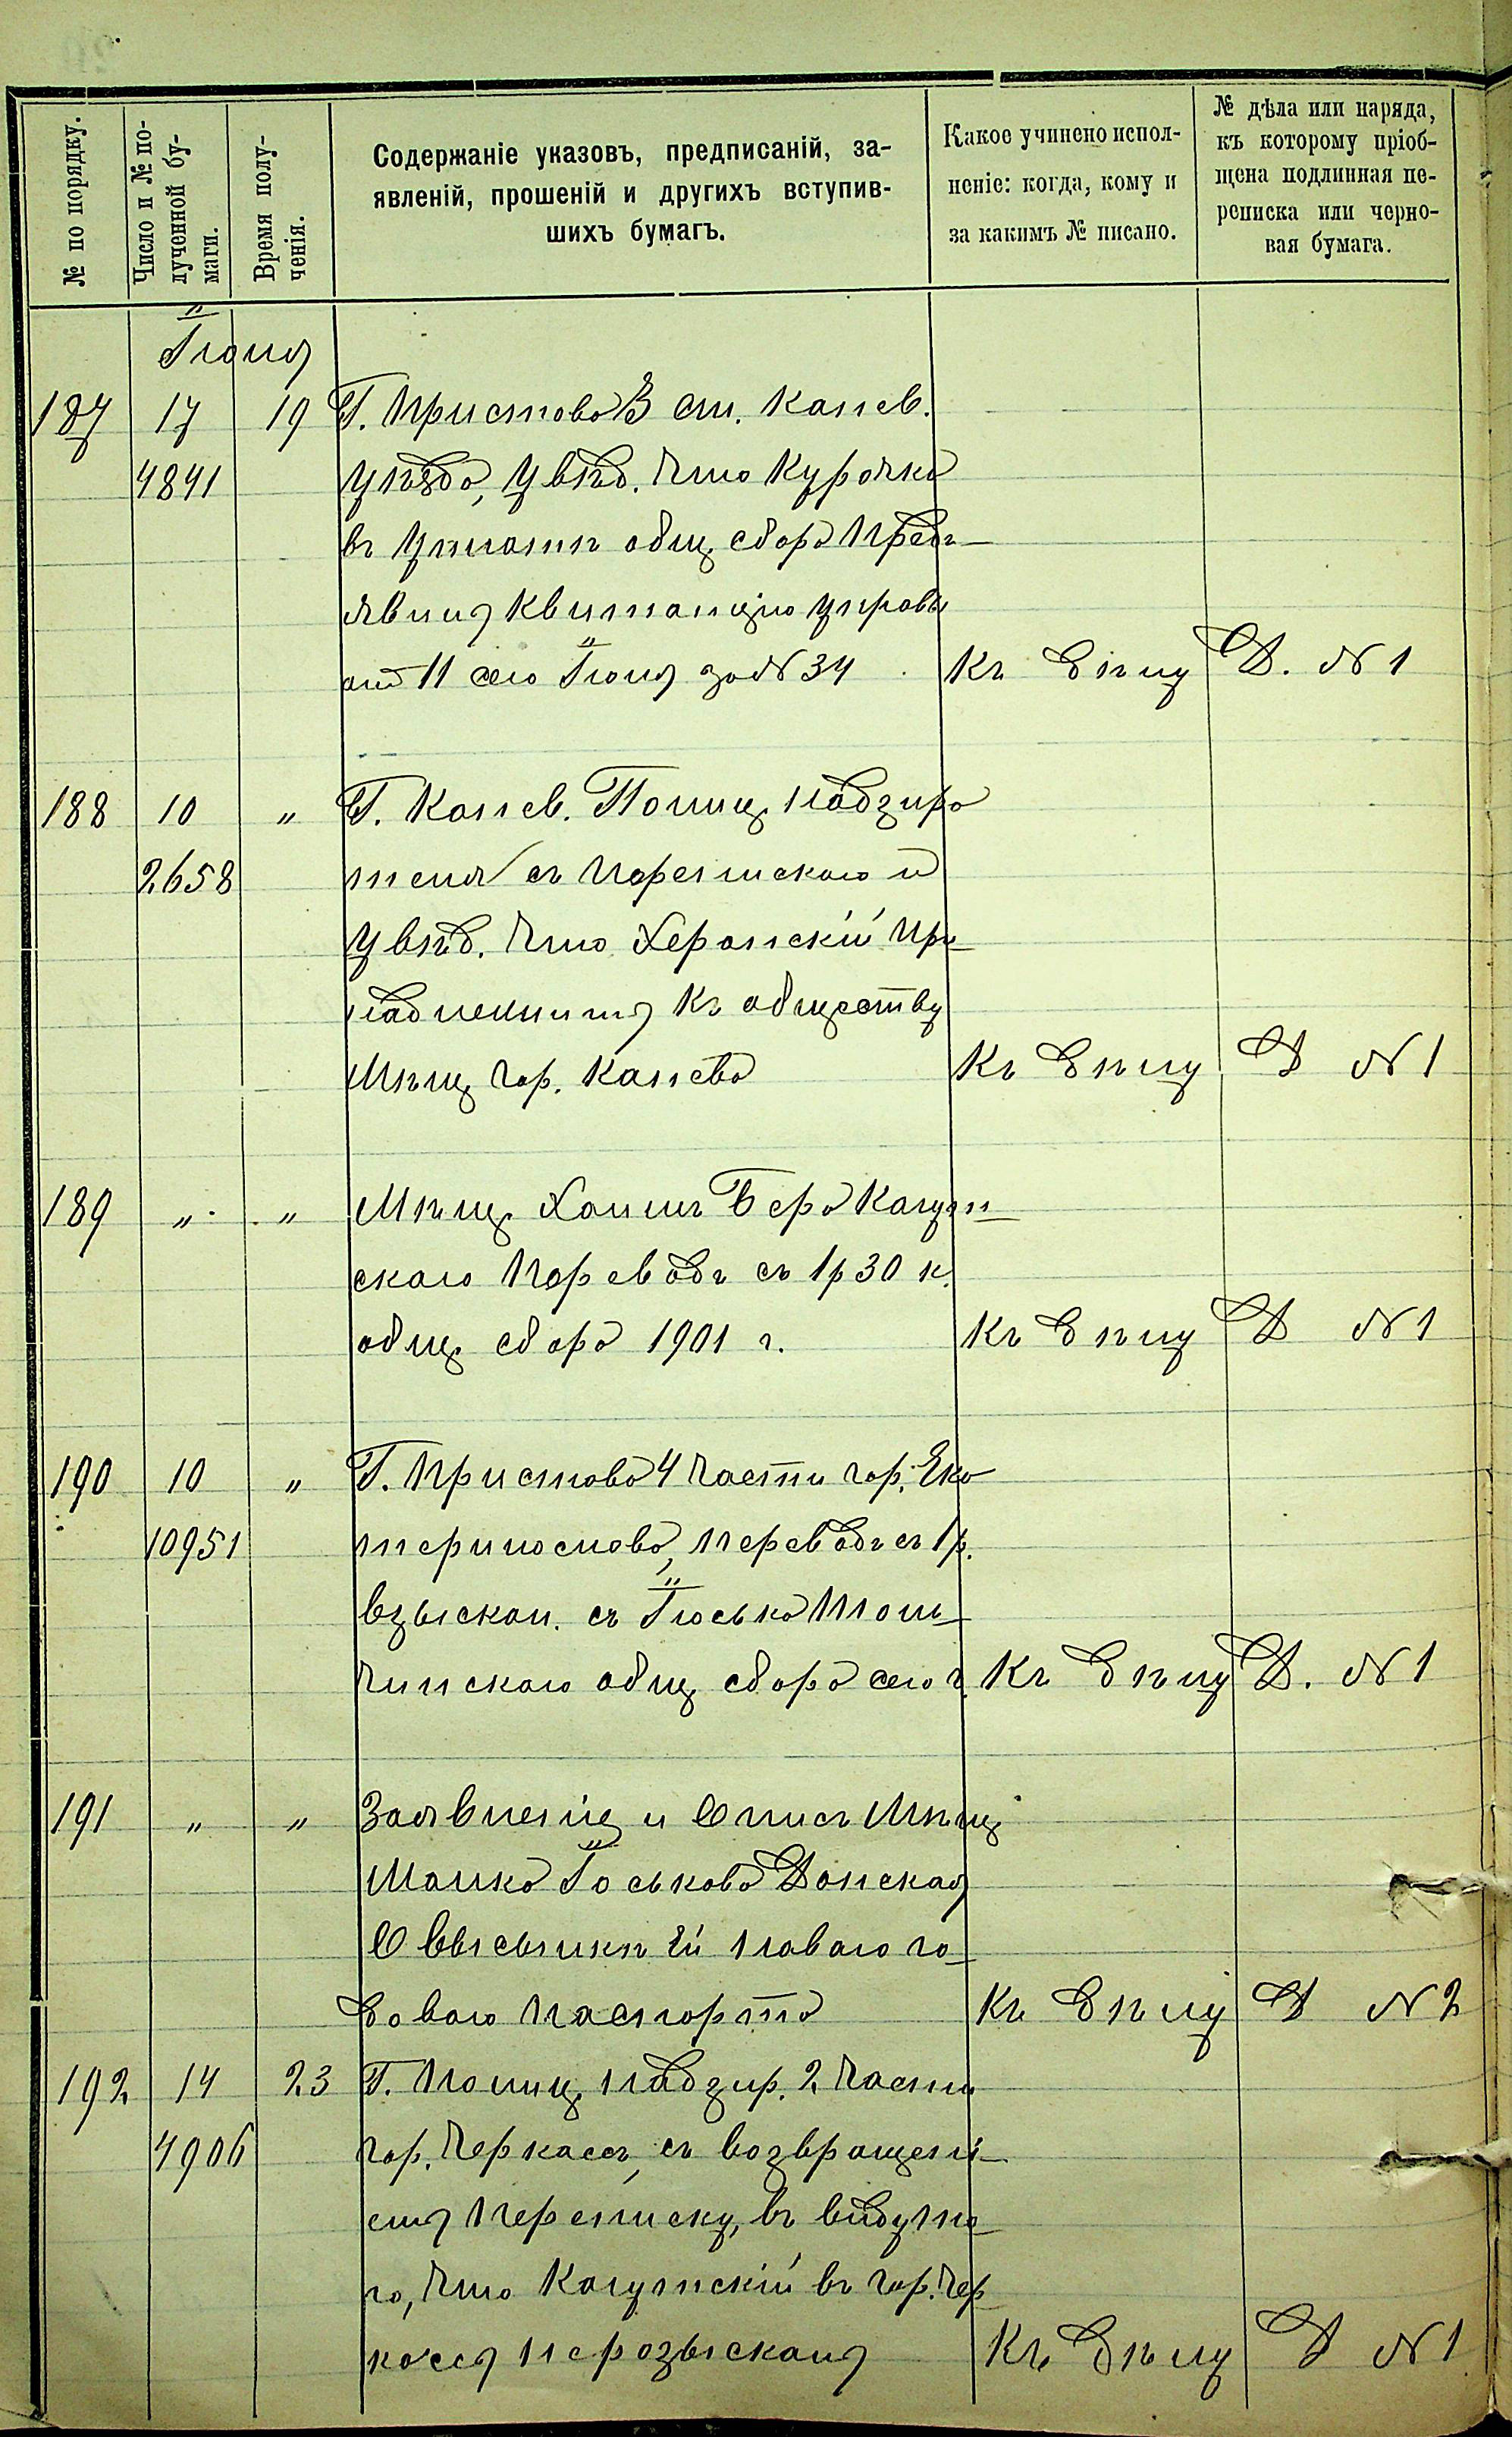 № по порядку.
Число и № по-
лученной бу-
маги.
Время полу-
ченія.
Содержаніе указовъ, предписаній, за-
явленій, прошеній и другихъ вступив-
шихъ бумагъ.
Какое учинено испол-
неніе: когда, кому и
за какимъ № писано.
№ дѣла или наряда,
къ которому пріоб-
щена подлинная пе-
реписка или черно-
вая бумага.
Іюня
187 17 19 Г. Пристава 3 ст. Канев.
4841 уѣзда, увѣд. что Курочка
въ уплатѣ общ. сбора предъ-
явилъ квитанцію управы
отъ 11 сего Іюня за № 34 Къ дѣлу Д. № 1
188 10 „ Г. Канев. Полиц. надзира
2658 теля съ перепискою и
увѣд. что Херонскій при
надлежитъ къ обществу
Мѣщ. гор. Канева Къ дѣлу Д № 1
189 „ „ Мѣщ. Хаимъ Бера
скаго переводъ съ 1 р 30 к.
общ. сбора 1901 г. Къ дѣлу Д № 1
190 10 „ Г. Пристава 4 части гор. Ека
10951 теринослава, переводъ съ 1 р.
взыскан. съ Іоська
чинскаго общ. сбора сего г. Къ дѣлу Д. № 1
191 „ „ Заявленіе мѣщ.
Малка Іоськова Донская
О высылкѣ ей новаго го
доваго паспорта Къ дѣлу Д № 2
192 14 23 Г. Полиц. надзир. 2 части
4906 гор. Черкассъ, съ возвращені-
емъ переписку, въ виду то
го, что въ гор. Чер
кассы не розысканъ Къ дѣлу Д № 1